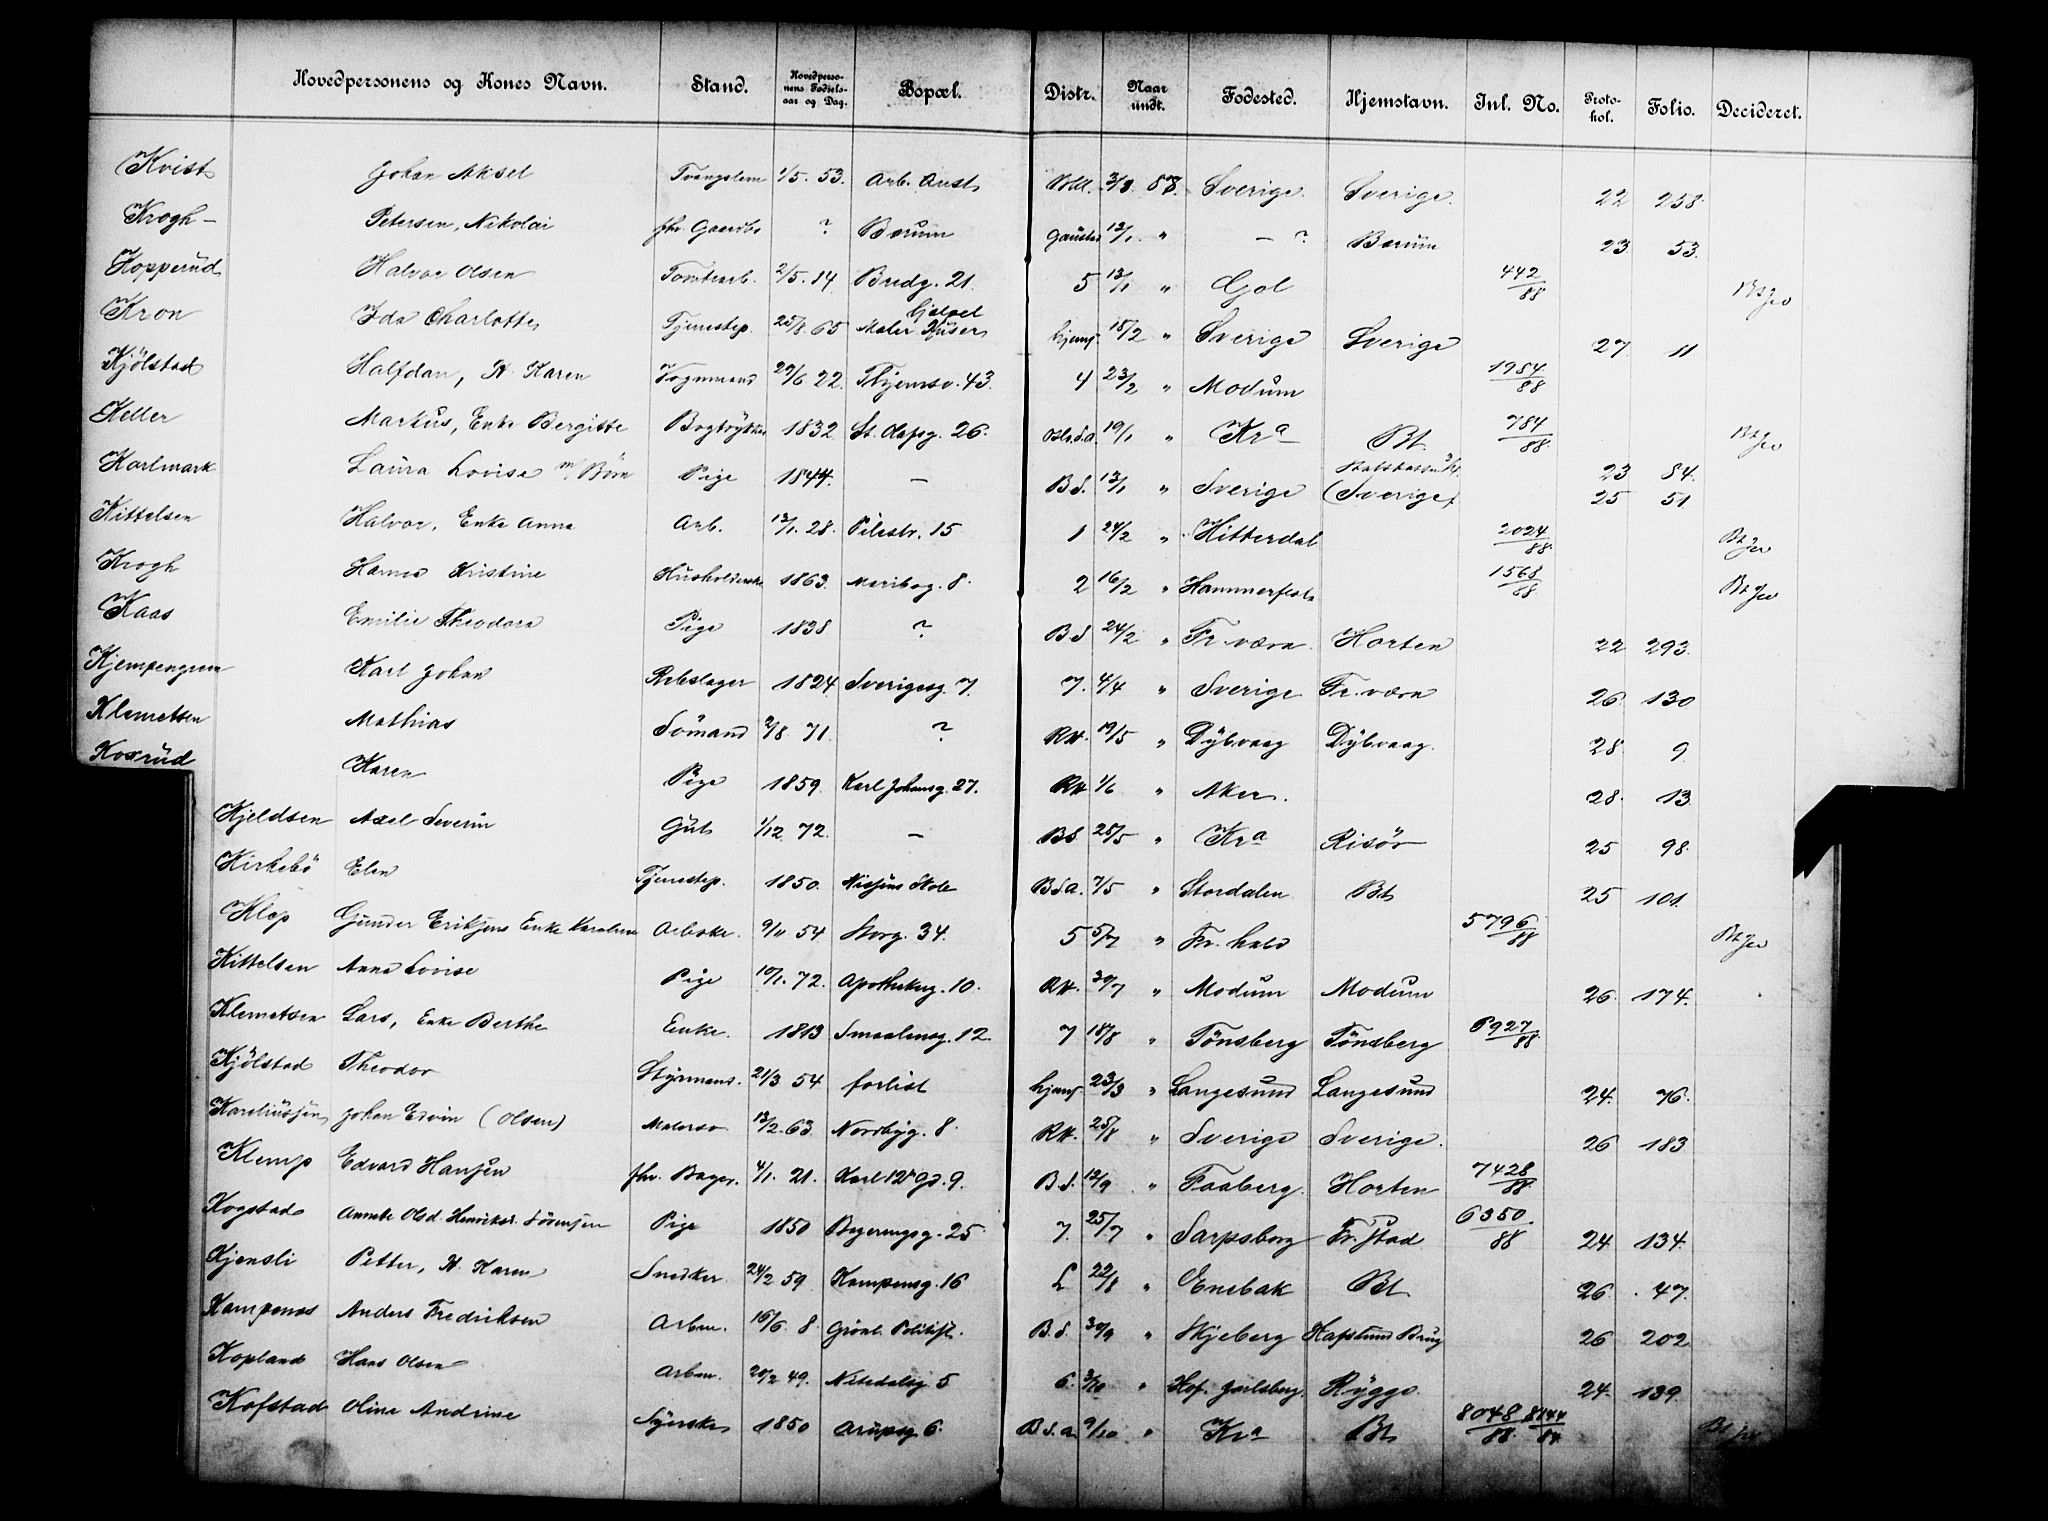 Hovedpersonens og Kones Navn. Stand. Hovedpersonens Fødselsaar og Dag. Bopæl. Distr. Naar undt. Fødested. Hjemstavn. Inl. No. Protokol. Folio. Decideret.
Kvist Johan Aksel Tvangslem 1/5. 53. Arb. Anst. 3/3. 88. Sverige. Sverige. 22 258.
Krogh – Petersen, Nikolai fhv. Gaardbr ? Bærum Gaustad 12/1 " – ? Bærum 23. 53.
Kopperud Halvor Olsen Tomtearb. 2/5. 14 Bredg. 21. 5 13/1 " Gol 442/88
Kron Ida Charlotte Tjenestep. 25/8. 65 Maler hjemf. 18/2 " Sverige Sverige 27. 11
Kjölstad Halfdan, H. Karen Vognmand 29/6 22. Thjemsv. 43. 4 23/2 " Modum 1984/88
Keller Markus, Enke Bergitte Bogtrykker 1832 St. Olafsg. 26. 19/1 " Kra Bt. 784/88.
Karlmark Laura Lovise m/ Børn Pige 1844. – B.S. 13/1 " Sverige (Sverige) 23 84. 25 51.
Kittelsen Halvor, Enke Anna Arb. 13/1. 28. Pilestr. 15 1 24/2 " Hitterdal 2024/88.
Krogh Hanna Kristine Husholderske 1863. Maribog. 8. 2 16/2 " Hammerfest 1568/88
Kaas Emilie Theodora Pige 1838 ? B.S 24/2 " Fr. værn. Horten 22 293.
Kjempengren Karl Johan Rebslager 1824. Sverigesg. 7. 7. 4/4 " Sverige Fr. værn 26. 130
Klemetsen Mathias Sömand 2/8 71. ? RH. 19/5 " Dybvaag Dybvaag. 28. 9
Koxrud Karen Pige 1859. Karl Johansg. 27. RH 1/6 " Aker. 28. 13.
Kjeldsen Axel Severin Gut 1/12. 72. – BS 25/5 " Kra Risör 25 98.
Kirkebö Elen Tjenestep. 1850. Nissens Skole B.S.a. 7/5 " Stordalen Bt 25 101.
Klep Gunder Eriksens Enke Karoline Arbske. 9/11 54 Storg. 34. 5 5/7 " Fr. hald 5796/88
Kittelsen Anna Lovise Pige 10/1. 72. Apothekerg. 10. RH. 30/7 " Modum Modum 26. 174.
Klemetsen Lars, Enke Berthe Enke. 1813 Smaalensg. 12. 7 18/8 " Tönsberg Tönsberg 6927/88.
Kjölstad Theodor Styrmand. 21/3 54 forlist hjemf. 23/3 " Langesund Langesund 24. 76.
Johan Edvin (Olsen) Malersv 13/2. 63. Nordbyg. 8. RH. 25/8 " Sverige Sverige. 26 183.
Klemp Edvard Hansen fhv. Bager. 4/1. 21. Karl 12te Gd. 9. B.S. 12/9 " Faaberg. Horten 7428/88.
Kogstad Annette Olsd. Henriks. Sörensen Pige 1850 Bogeringsg. 25 7. 25/7 " Sarpsborg Fr. stad 6350/88 24. 134.
Kjensli Petter, H. Karen Snedker. 24/2 59. Kampensg. 16 L 22/8 " Enebak Bt 26. 47.
Kampenæs Anders Fredriksen Arbm. 16/6. 8. Grönl. Politist. B.S. 30/9 " Skjeberg Hafslund Brug 26 202
Kopland Hans Olsen Arbm. 20/2 49. Nittedalsg 5 6. 3/10 " Hof. Jarlsberg. Rygge. 24. 139.
Kofstad Oline Andrine Syerske 1850 Arupsg. 6. B.S.a. 9/10 " Kra Bt 8048/88. 8144/84